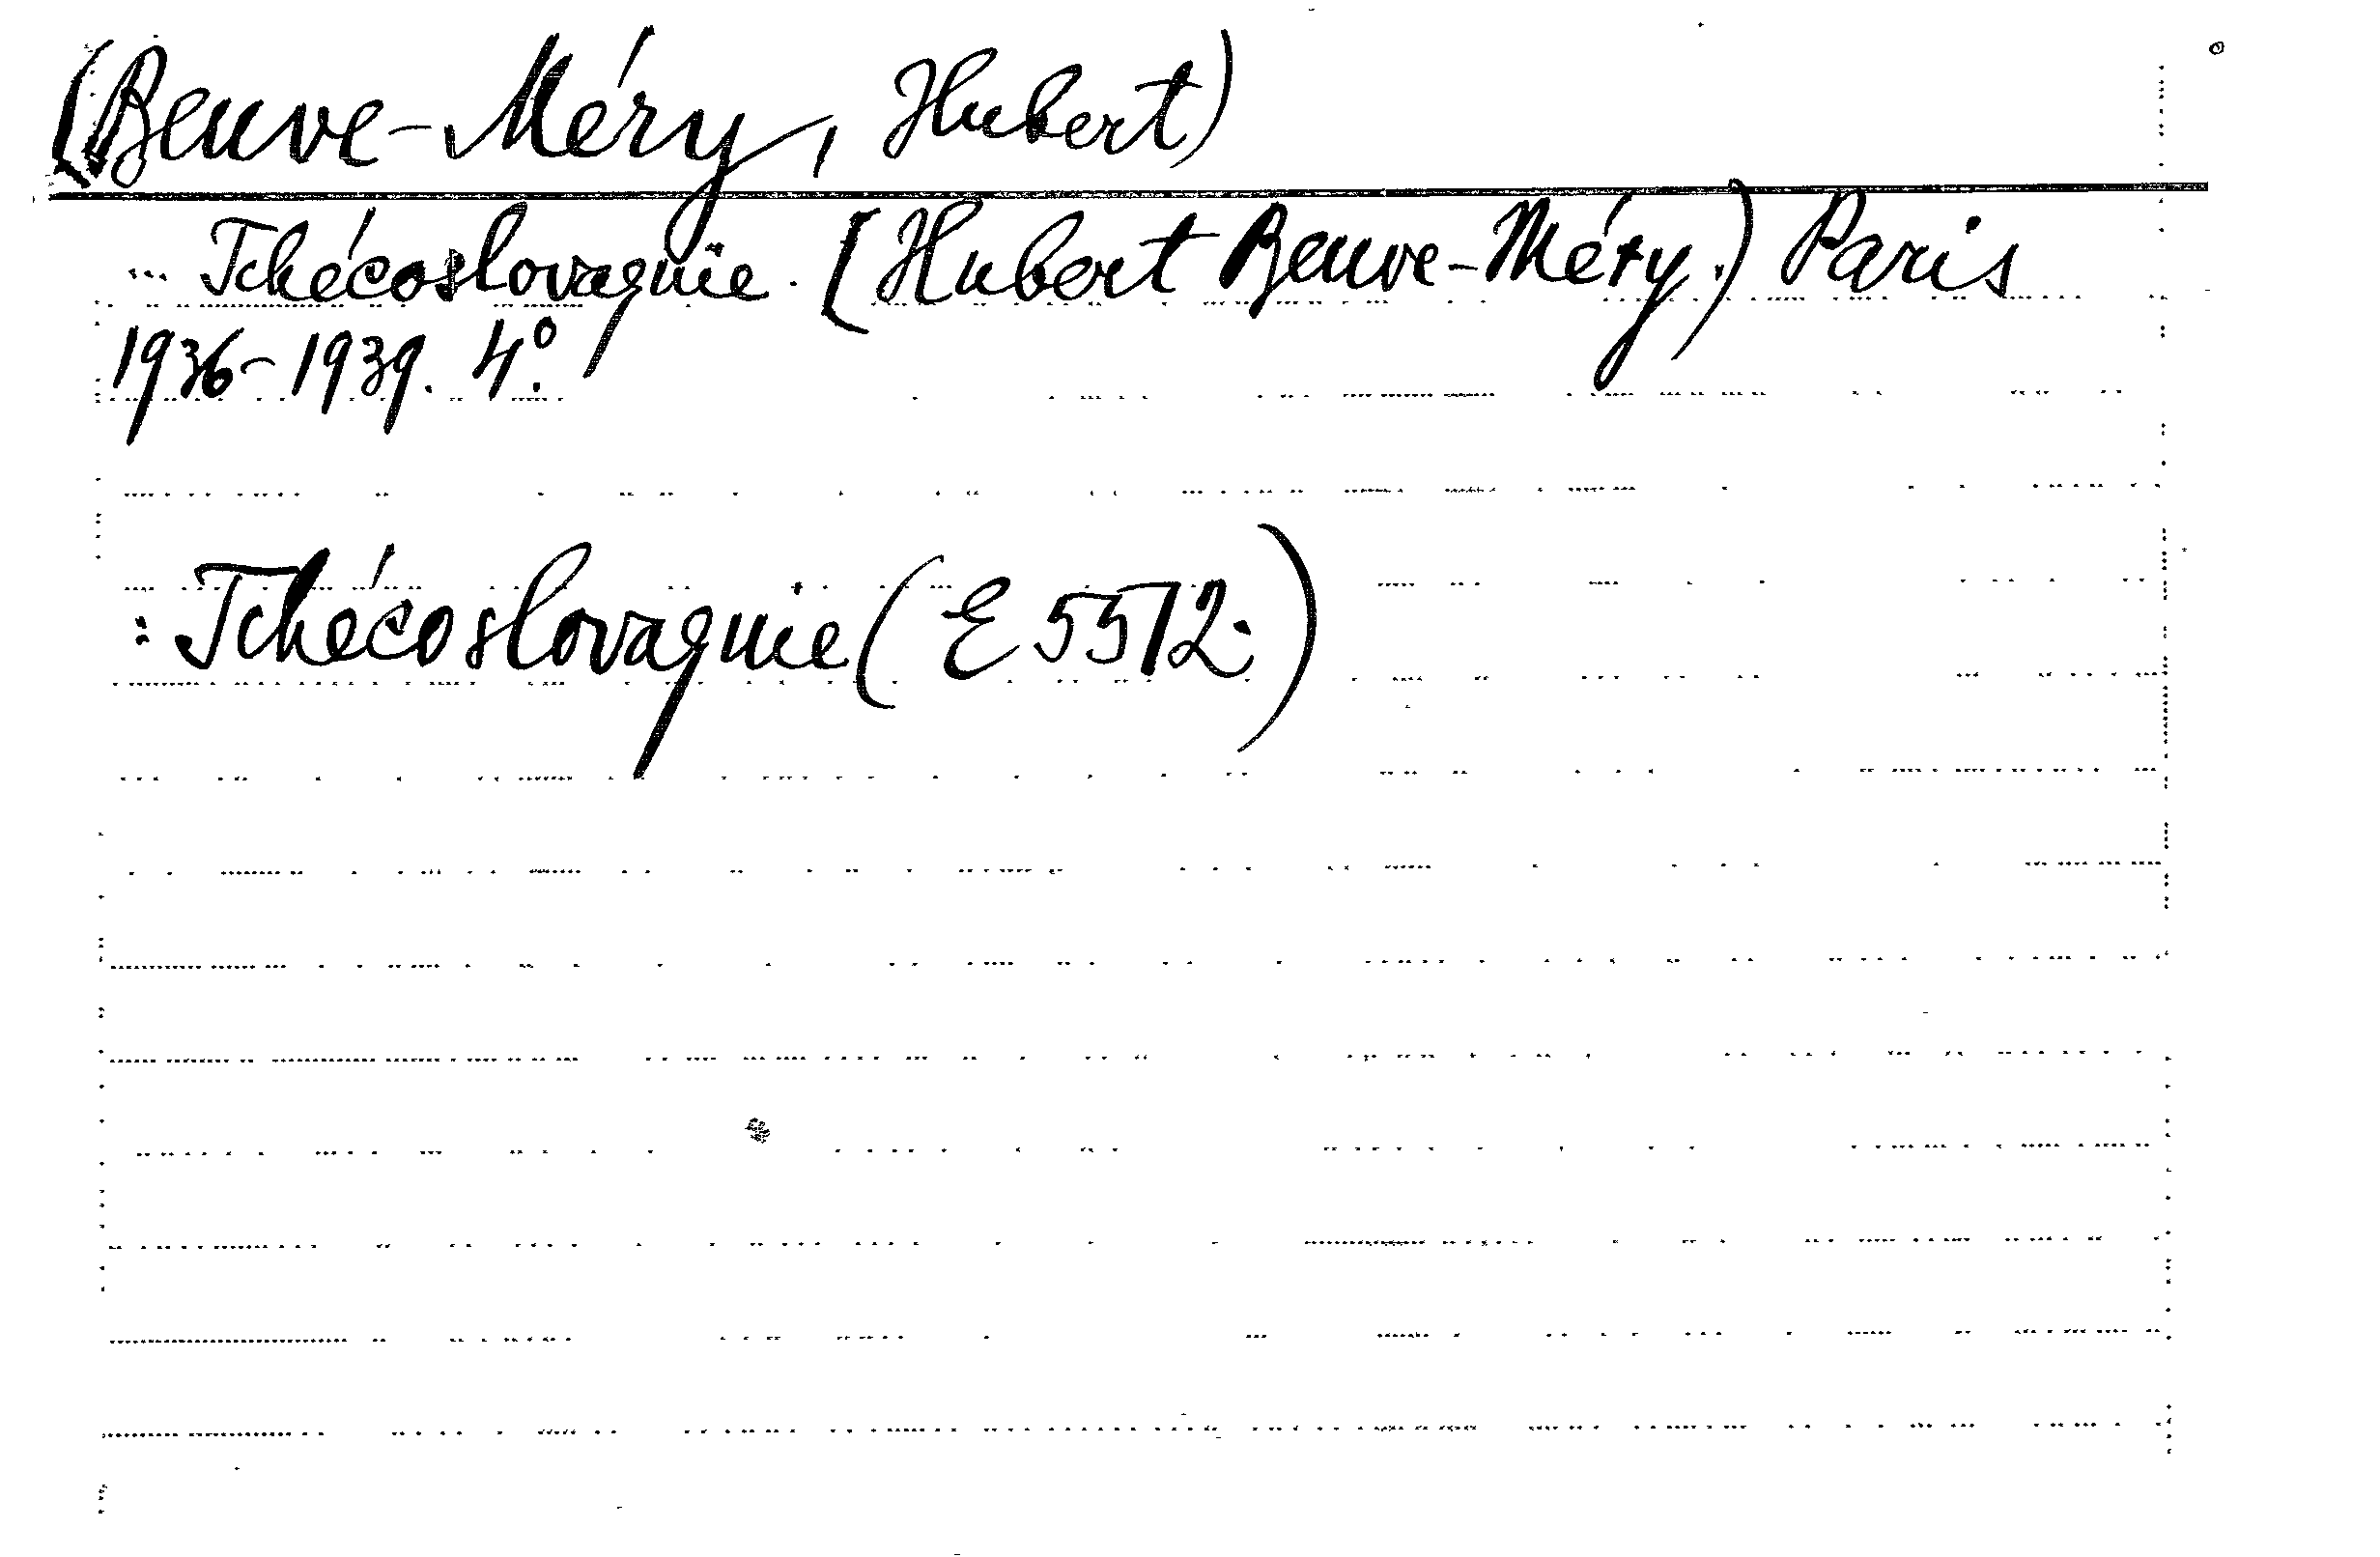 (Beuve-Méry, Hubert)
... Tchécoslovaquie. [Hubert Beuve-Méry.) Paris
1936-1939. 4°.
: Tchécoslovaquie (E 5512.)